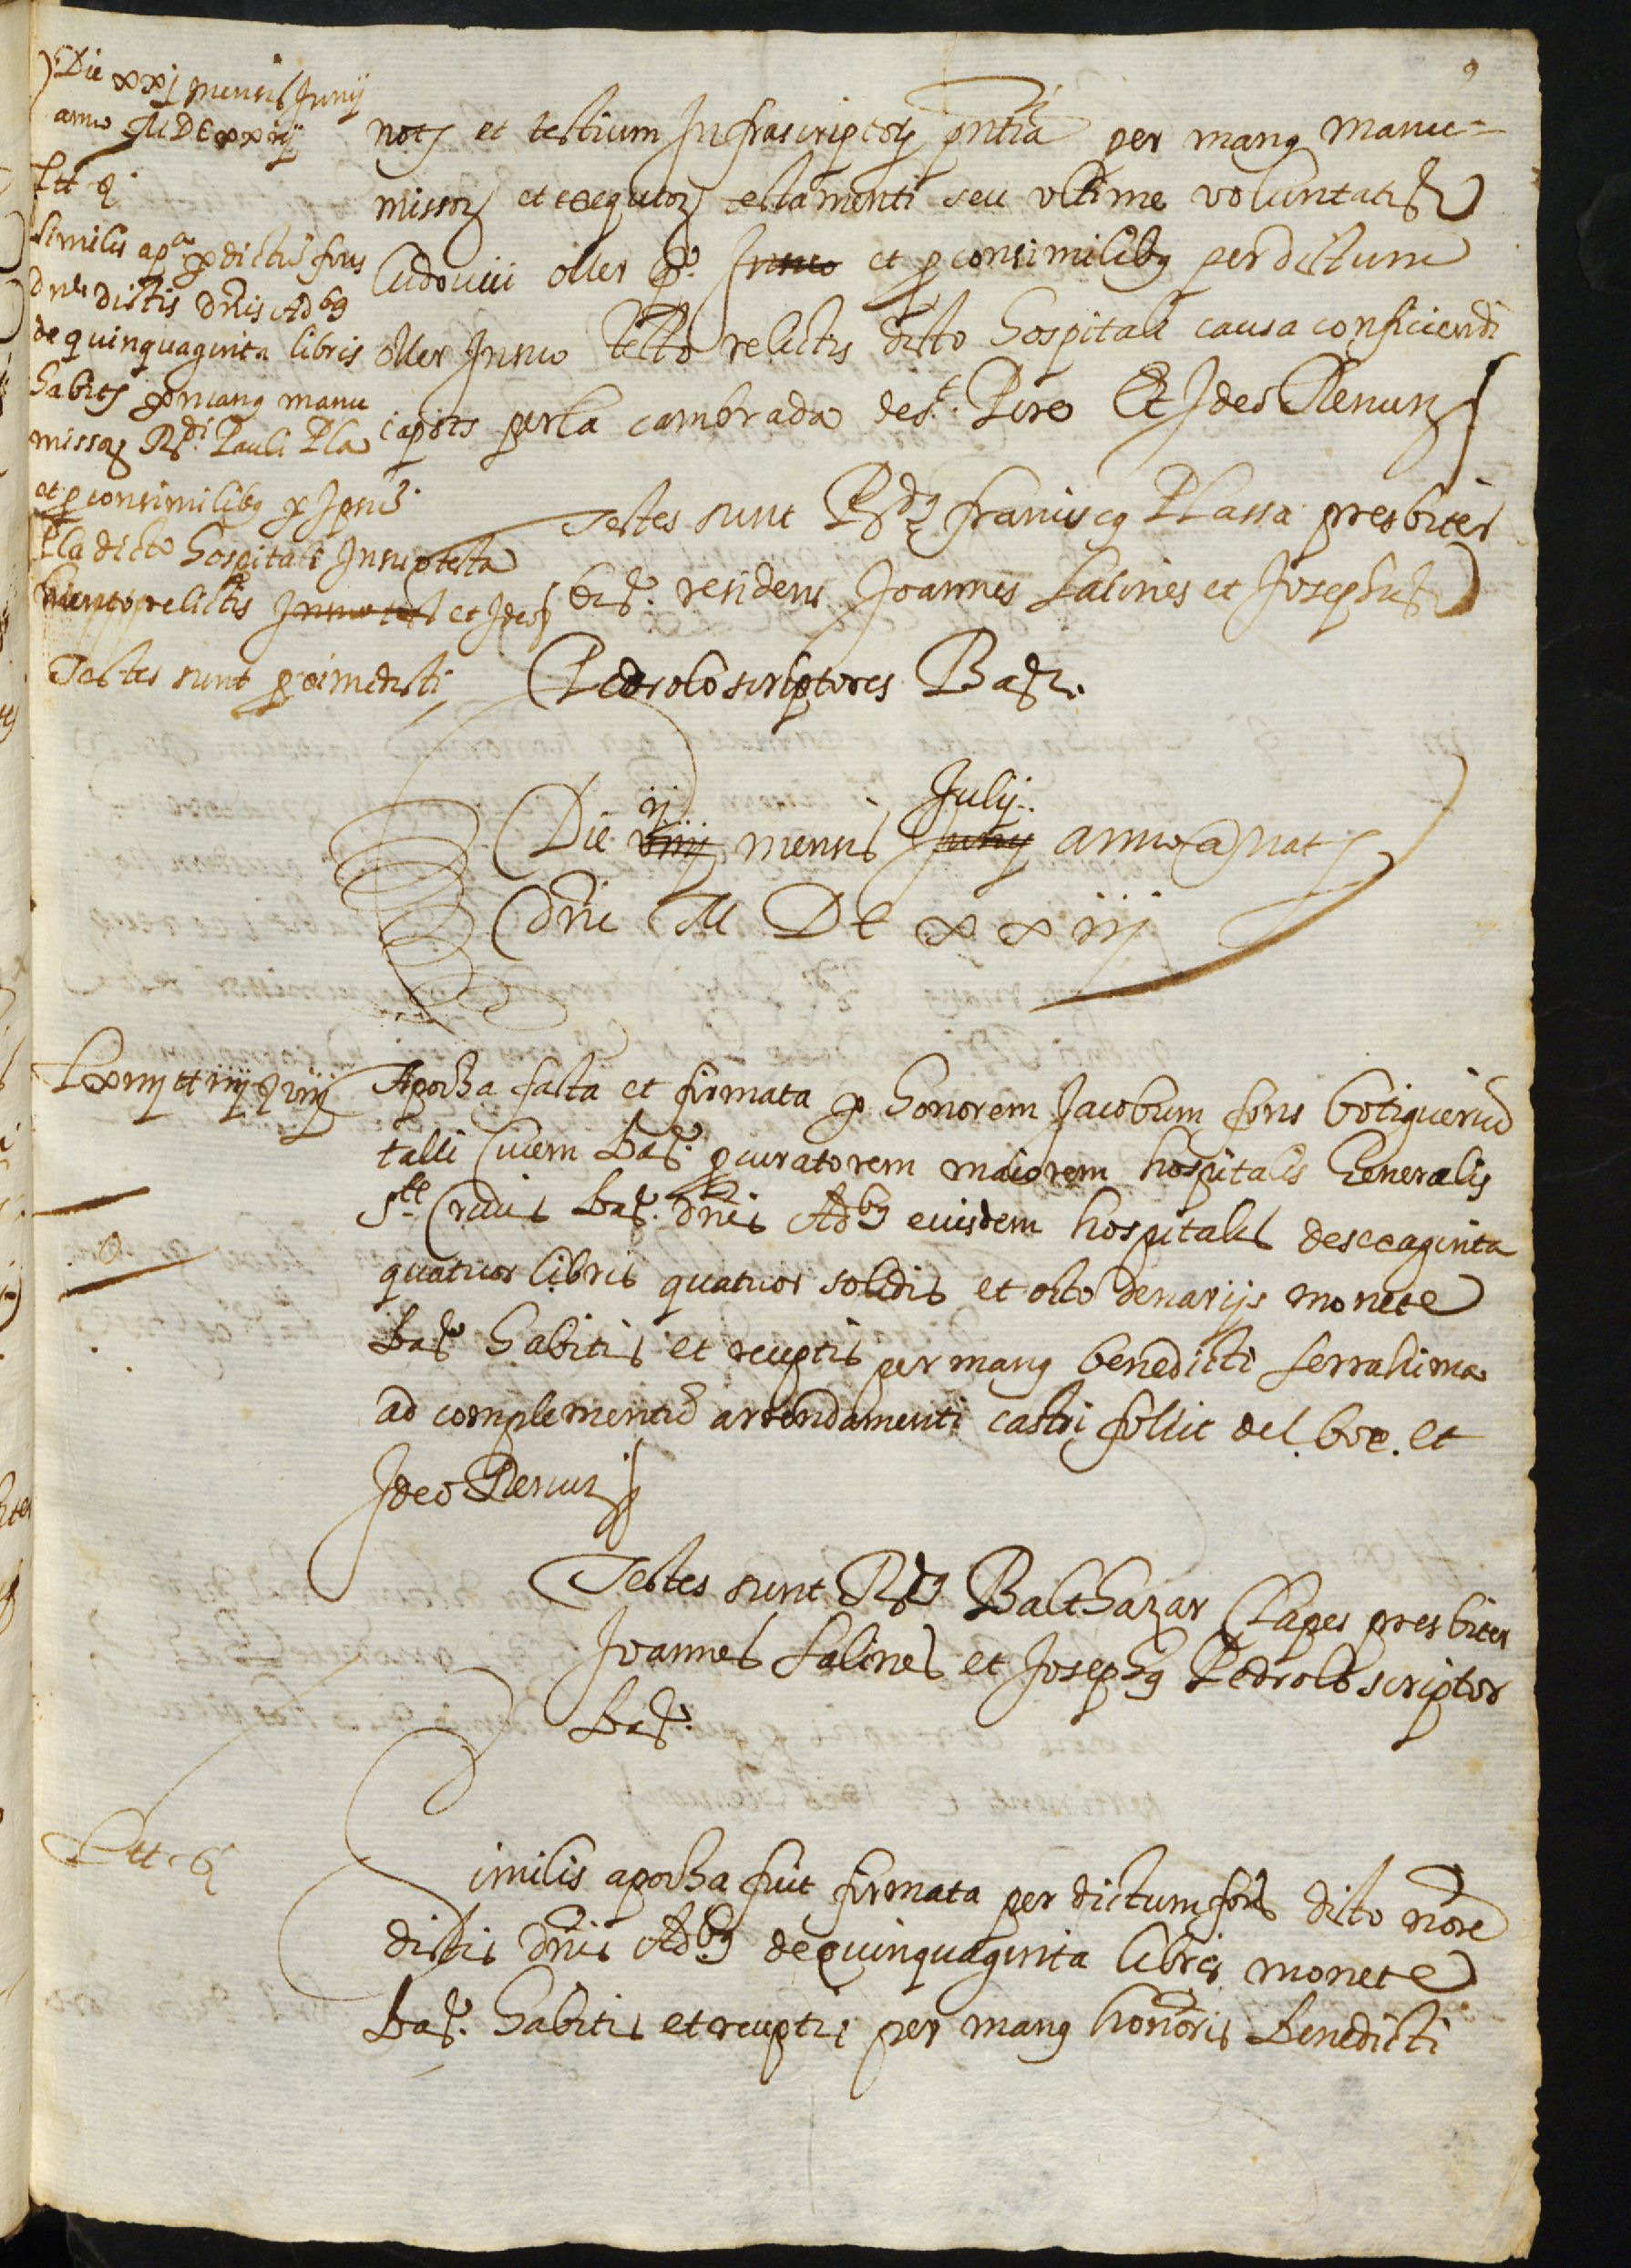 9
Die xxj mensis Junij
anno MDCxxiij
similis apª. p dictũ fons
dnis dictis dñis Adbs
de quinquaginta libris
habitis p manq manu
missoꝝ Rdi. Pauli Pla
et p consimilibq p Ipsũ
Pla dicto hospitali In suo testa
mento relictis In suo test et Ideo
Testes sunt proximedicti
notij et testium Infrascriptoꝝ pntia per manq manu=
missoꝝ et exequtoꝝ testamenti seu ultime voluntatis
Ludovici oller qº. In suo et p consimilibq per dictum
oller In suo testo relictis dicto hospitali causa conficiendi
capots per la cambrada de st. Pere Et Ideo Renunꝝ
Testes sunt Rdq franciscq Plassa presbiter
Bar. residens Joannes Salines et Josephus
Pedrolo scriptores Bar.
Die viiij ij mensis Junij Julij anno a nat
dni M DC xx iij
L xiiij tt iiij s viij
Apocha facta et firmata p honorem Jacobum fons botiguerium
talli Civem Bar. procuratorem maiorem hospitalis Generalis
ste Crucis Bar. dñis Adbq eiusdem hospitalis de sexaginta
quatuor libris quatuor solidis et octo denarijs monete
Bar. habitis et receptis per manq benedicti serrahima
ad complementũ arrendamenti castri follit del boc. et
Ideo Renunꝝ
Testes sunt Rdq Balthazar Clapes presbiter
Joannes Salines et Josephq Pedrolo scriptor
Bar.
L tt
Similis apocha fuit firmata per dictum fons dicto nõre
dictis dñis Adbq de quinquaginta libris monete
Bar. habitis et receptis per manq honoris Benedicti